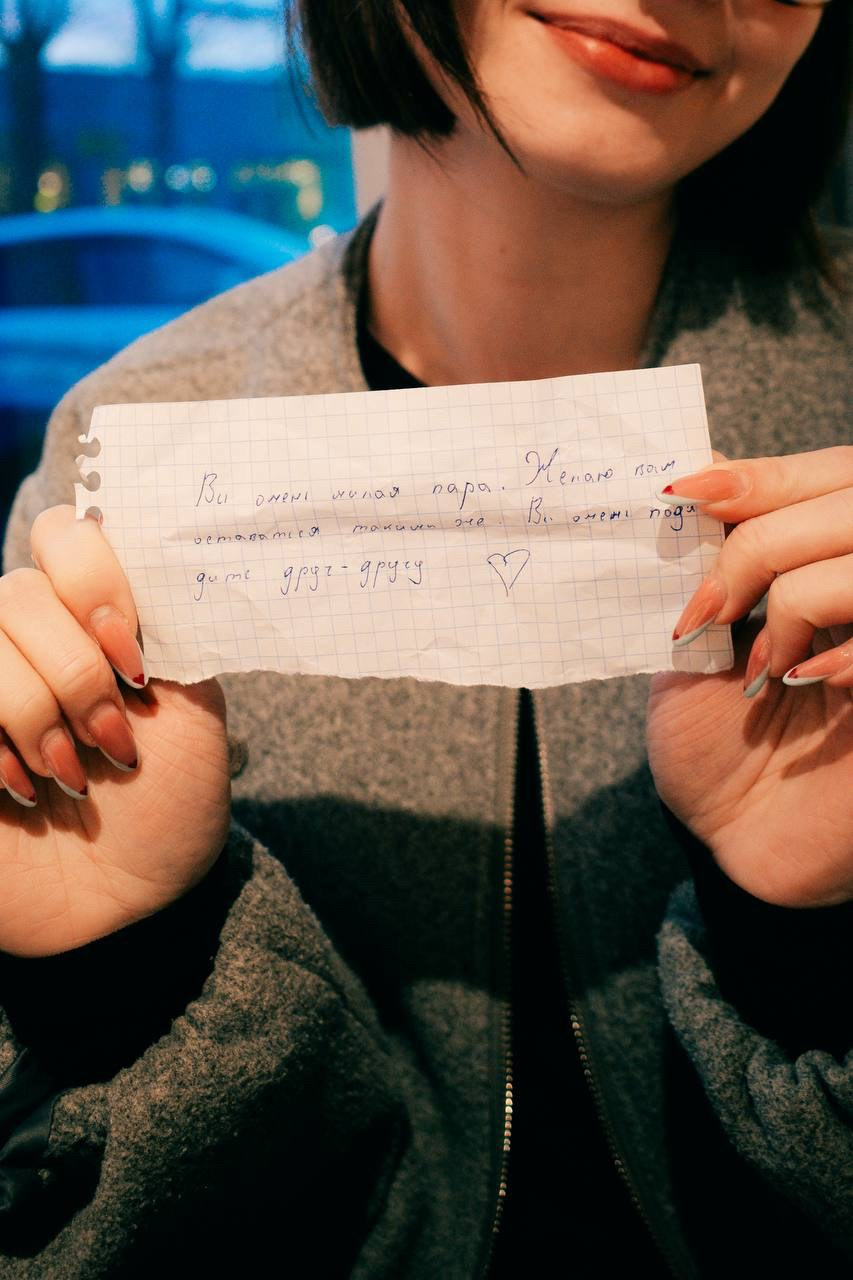 Вы очень милая пара. Желаю вам
оставатся такими же. Вы очень подх
дите друг-другу